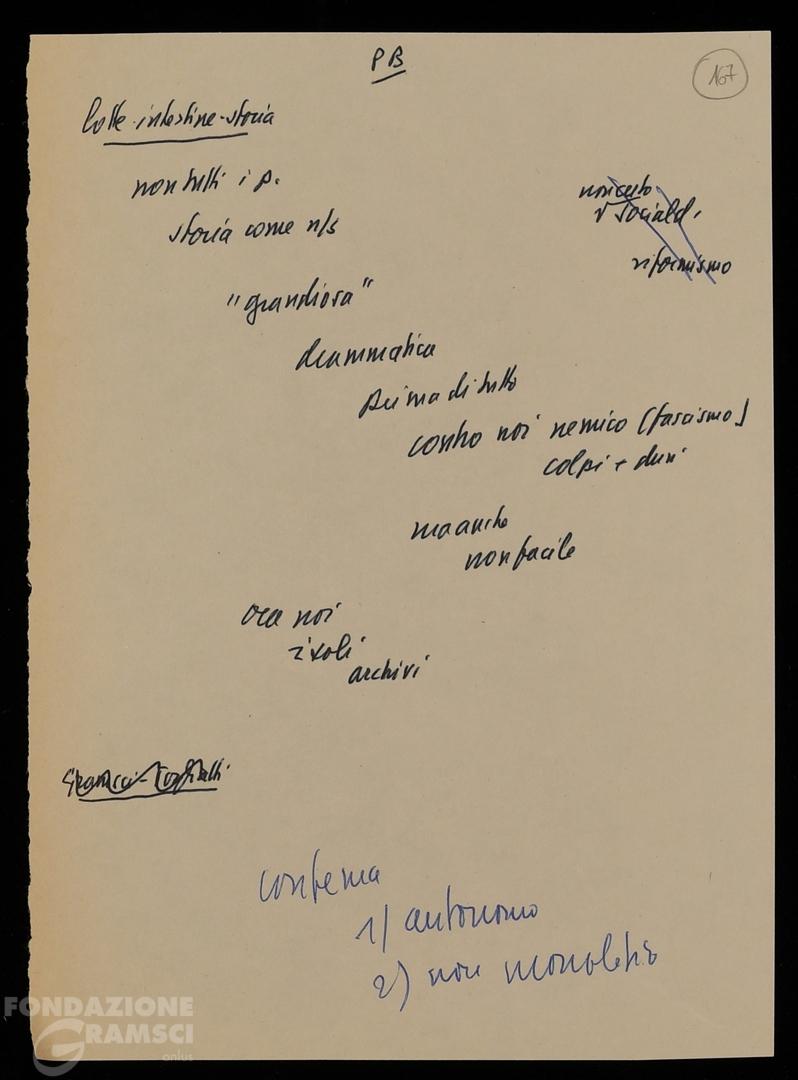 PB
167
lotte intestine - storia
non tutti i p.
storia come n/s
"grandiosa"
drammatica
prima di tutto
contro noi nemico (fascismo)
colpi + duri
ma anche
non facile
non certo
sociald.
riformismo
ora noi
i soli
archivi
Gramsci - Togliatti
conferma
1) autonomo
2) non monolitico
FONDAZIONE
GRAMSCI
onlus